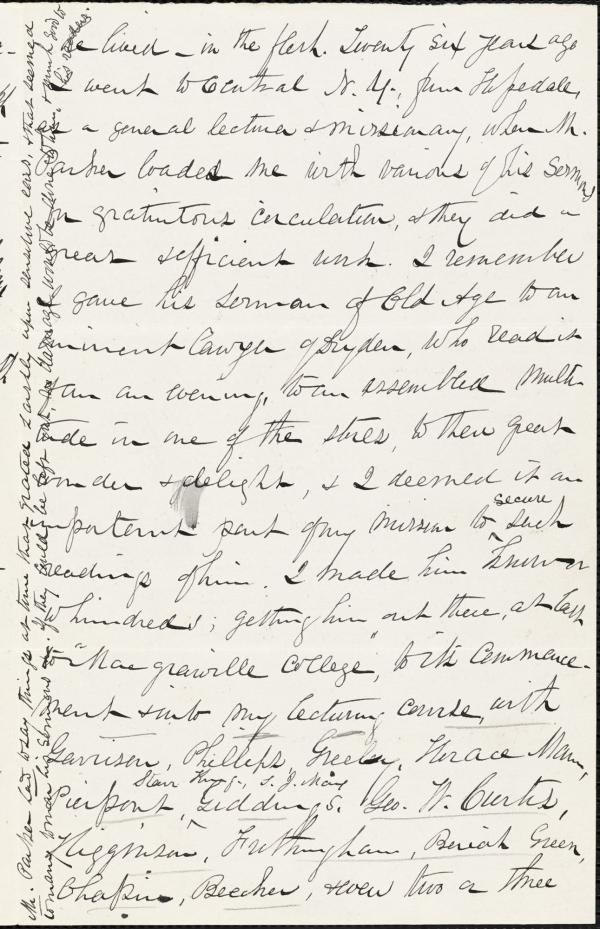 he lived - in the flesh. Twenty six years ago
I went to Central N. Y., from Hopedale,
as a general lecturer & missionary, when Mr.
Parker loaded me with various of his Sermons
for gratuitous circulation, & they did a
great & efficient work. I remember
I gave his Sermon of Old Age to an
eminent Lawyer of Dryden, who read it
on an evening, to an assembled multi-
tude in one of the stores, to their great
wonder & delight, & I deemed it an
important part of my mission to secure such
readings of him. I made him known
to hundreds; getting him out there, at last
to "Macgrawville College", to its Commence-
ment & into my lecturing course, with
Garrison, Phillips, Greeley, Horace Mann,
Starr King, S. J. May
Pierpont, Giddings, Geo. W. Curtis,
Higginson, Frothingham, Beriah Green,
Chapin, Beecher, & even two or three
Mr. Parker had to say things at times that grated harshly upon sensitive ears, & that seemed
to many to mar his sermons if they could be left out, no damage would be & much good to
his readers.